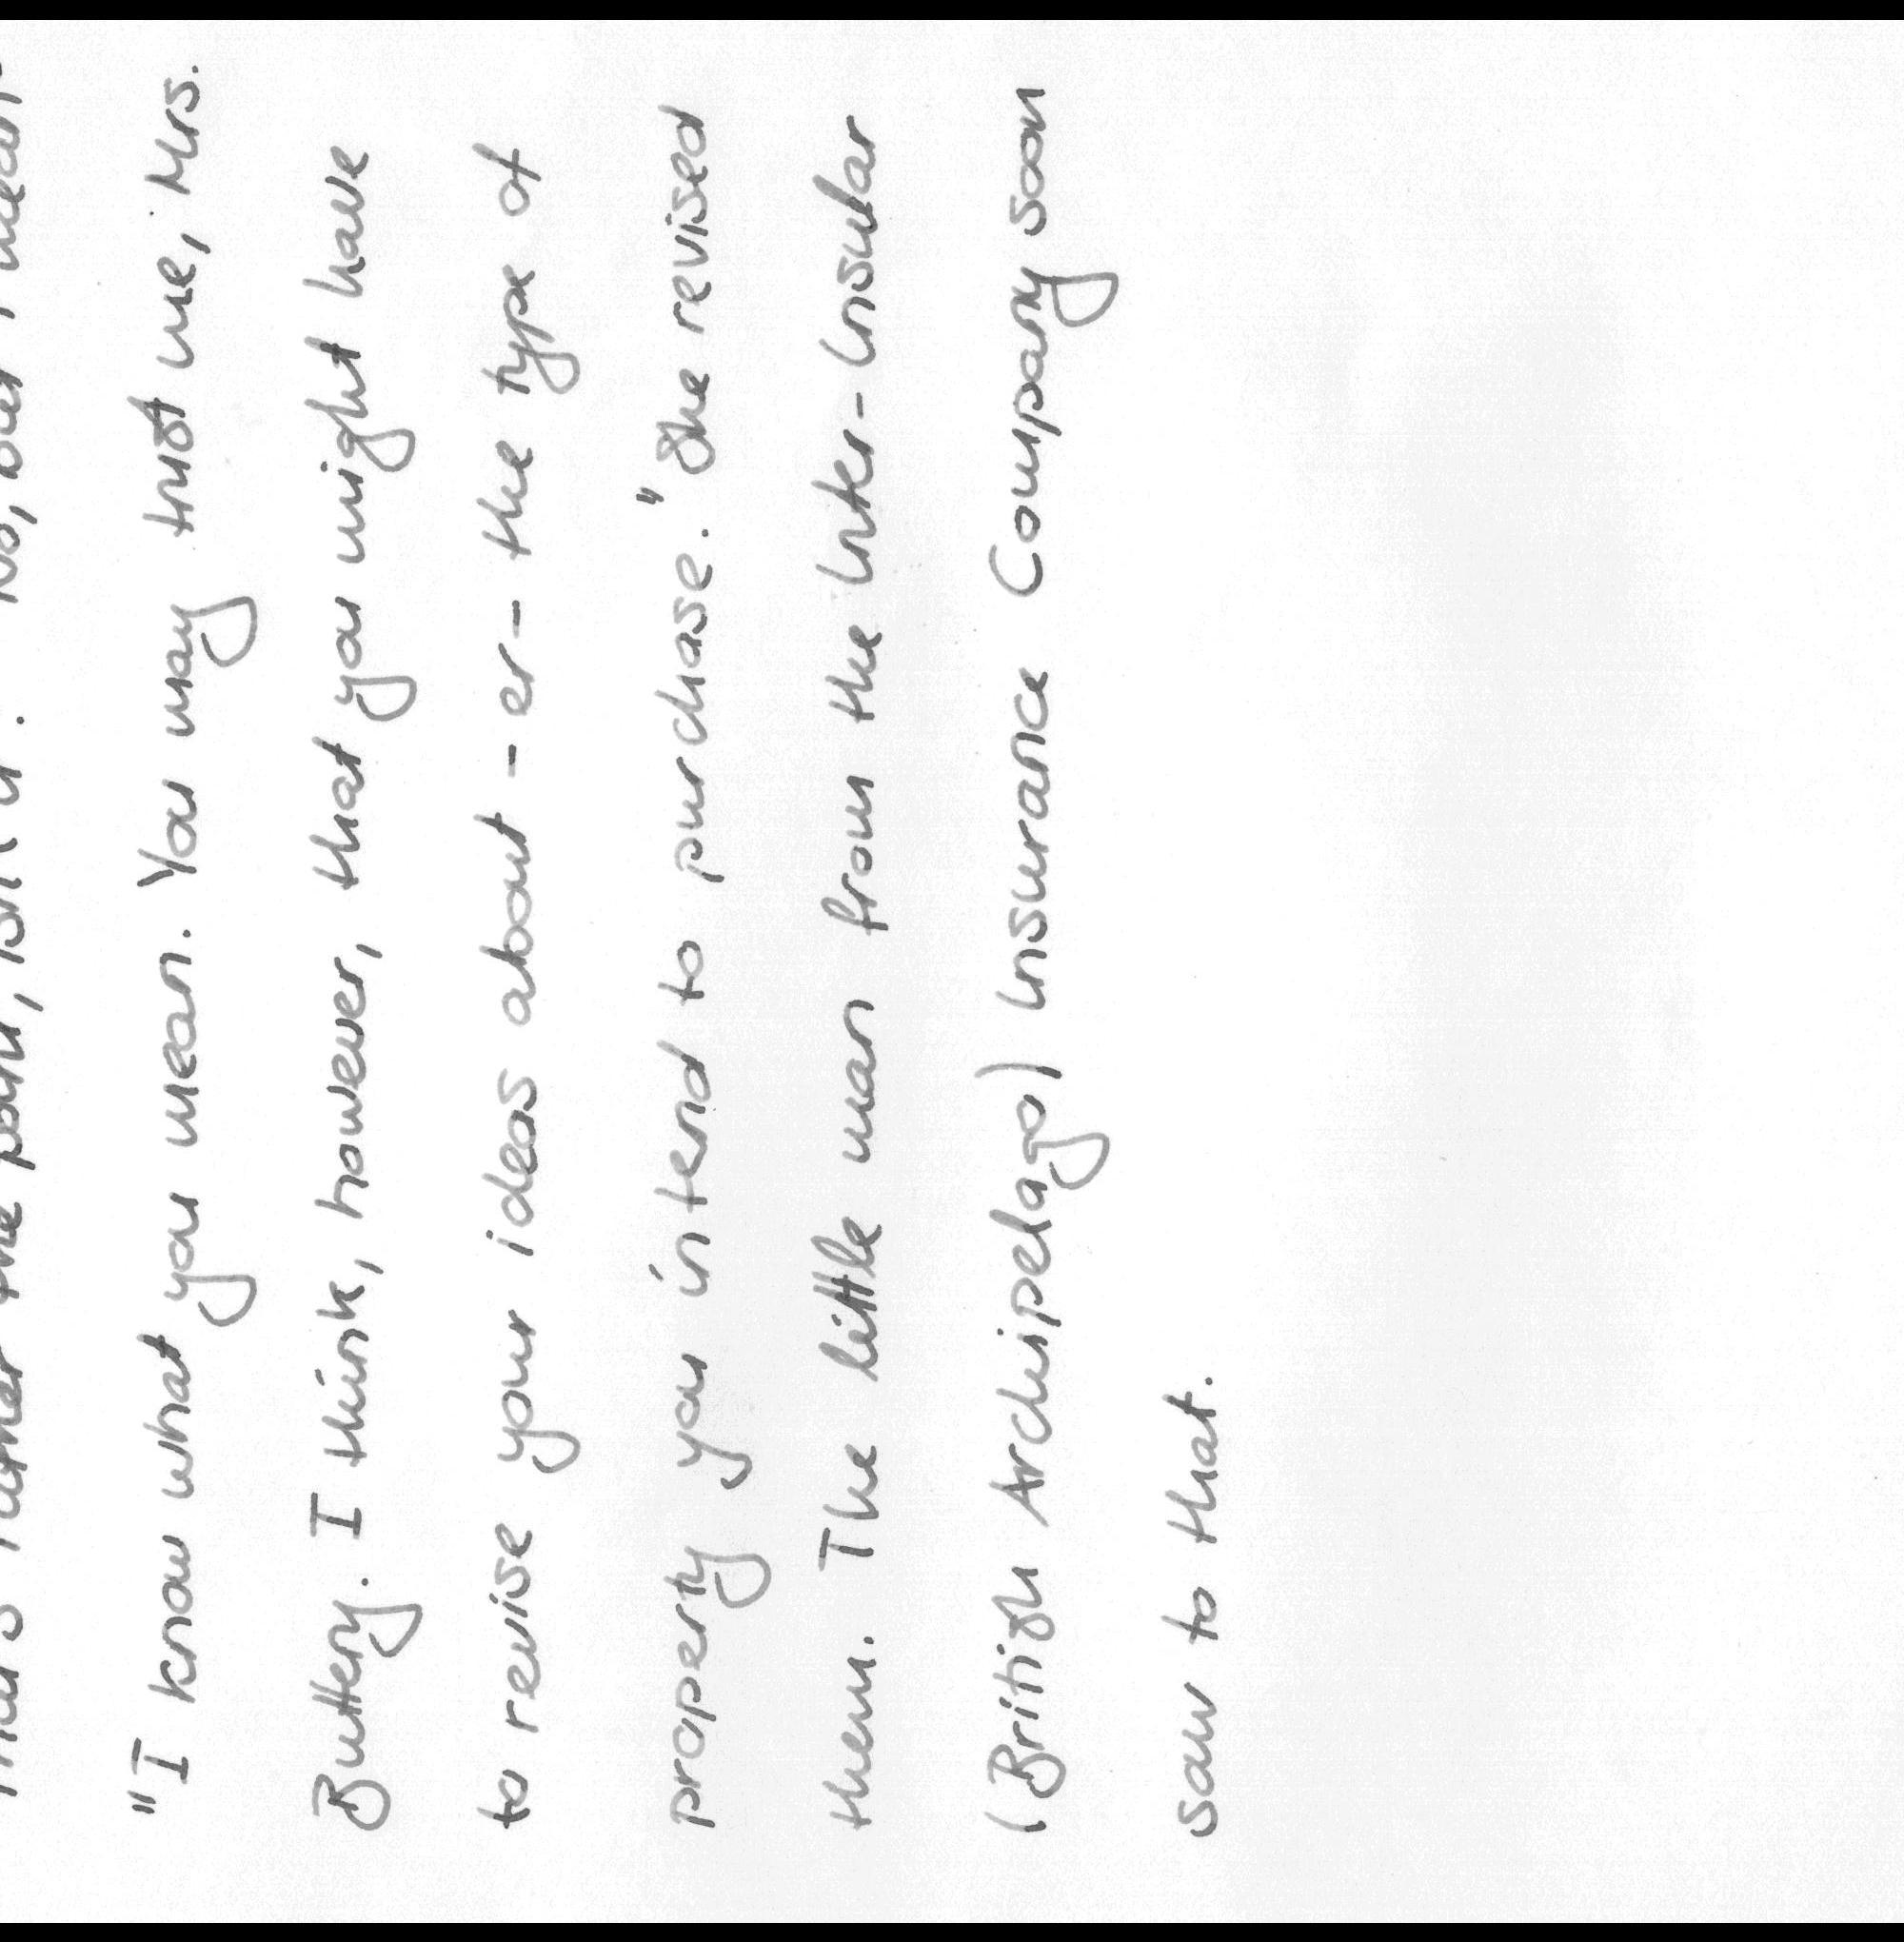 rather the point, isn't it. No, but I mean
"I know what you mean. You may trust me, Mrs.
Buttery. I think, however, that you might have
to revise your ideas about - er - the type of
property you intend to purchase." She revised
them. The little man from the Inter-Insular
(British Archipelago) Insurance Company soon
saw to that.